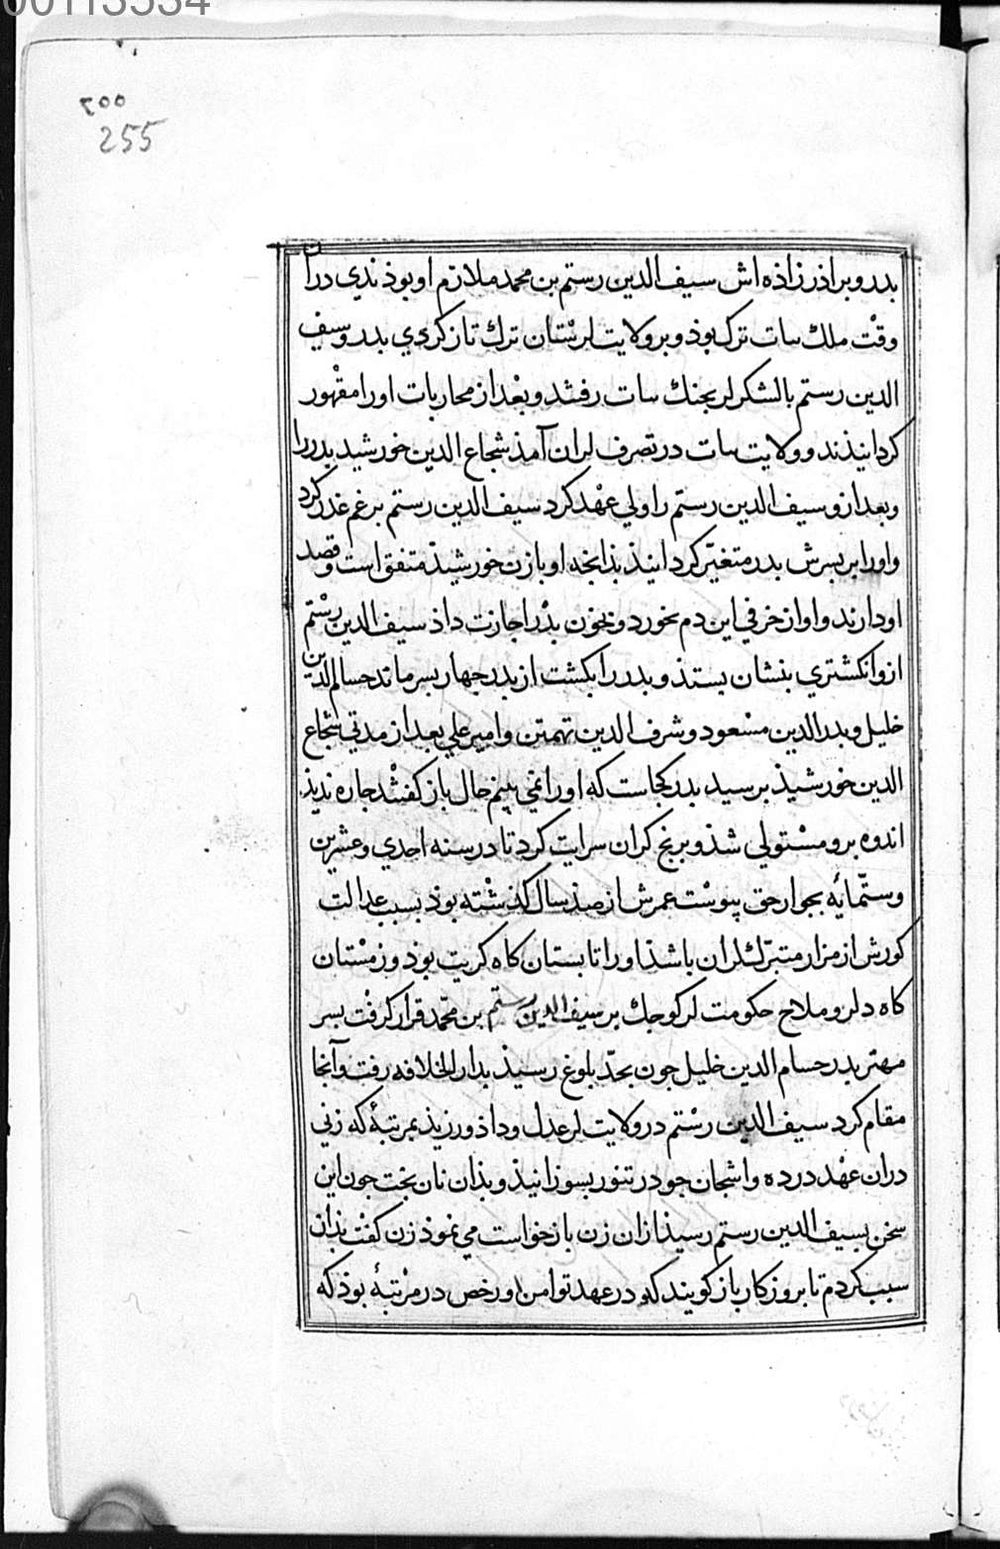 00113534
٢٥٥
255
بدر و براذرزاذه اش سيف الدين رستم بن محمد ملازم او بوذندي دران
وقت ملك بيات ترك بوذ و بر ولايت لرستان ترك تاز كردي بدر و سيف
الدين رستم بالشكر لر بجنك بيات رفتند و بعد از محاربات او را مقهور
كردانيذند و ولايت بيات در تصرف لران آمذ شجاع الدين خورشيد بدر را
و بعد ازو سيف الدين رستم را ولي عهد كرد سيف الدين رستم برغم غدر كرد
و او را بر بسرش بدر متغير كردانيذ بذانجه او با زن خورشيذ متفق است و قصد
او دارند و او از خرفي اين دم بخورد و بخون بدر اجازت داذ سيف الدين رستم
ازو انكشتري بنشان بستذ و بدر را بكشت از بدر جهار بسر ماند حسام الدين
خليل و بدر الدين مسعود و شرف الدين تهمتن و امير علي بعد از مدتي شجاع
الدين خورشيذ برسيد بدر كجاست كه او را نمي بينم حال باز كفتند جاره نديذ
اندوه برو مستولي شذ و برنج كران سرايت كرد تا در سنه احدي و عشرين
و ستمايه بجوار حق پيوست عمرش از صذ سال كذشته بوذ بسبب عدالت
كورش از مزار متبرك لران باشد او را تابستان كاه كريت بوذ و زمستان
كاه دلر و ملاح حكومت لر كوجك بر سيف الدين رستم بن محمد قرار كرفت بسر
مهتر بدر حسام الدين خليل جون بحد بلوغ رسيذ بدار الخلافه رفت و آنجا
مقام كرد سيف الدين رستم در ولايت لر عدل و داذ ورزيذ بمرتبهٔ كه زني
دران عهد در ده واشجان جو در تنور بسوزانيذ و بذان نان بخت جون اين
سخن بسيف الدين رستم رسيذ ازان زن بازخواست مي نموذ زن كفت بذان
سبب كردم تا بروزكار باز كويند كه در عهد تو امن و رخص در مرتبهٔ بوذ كه